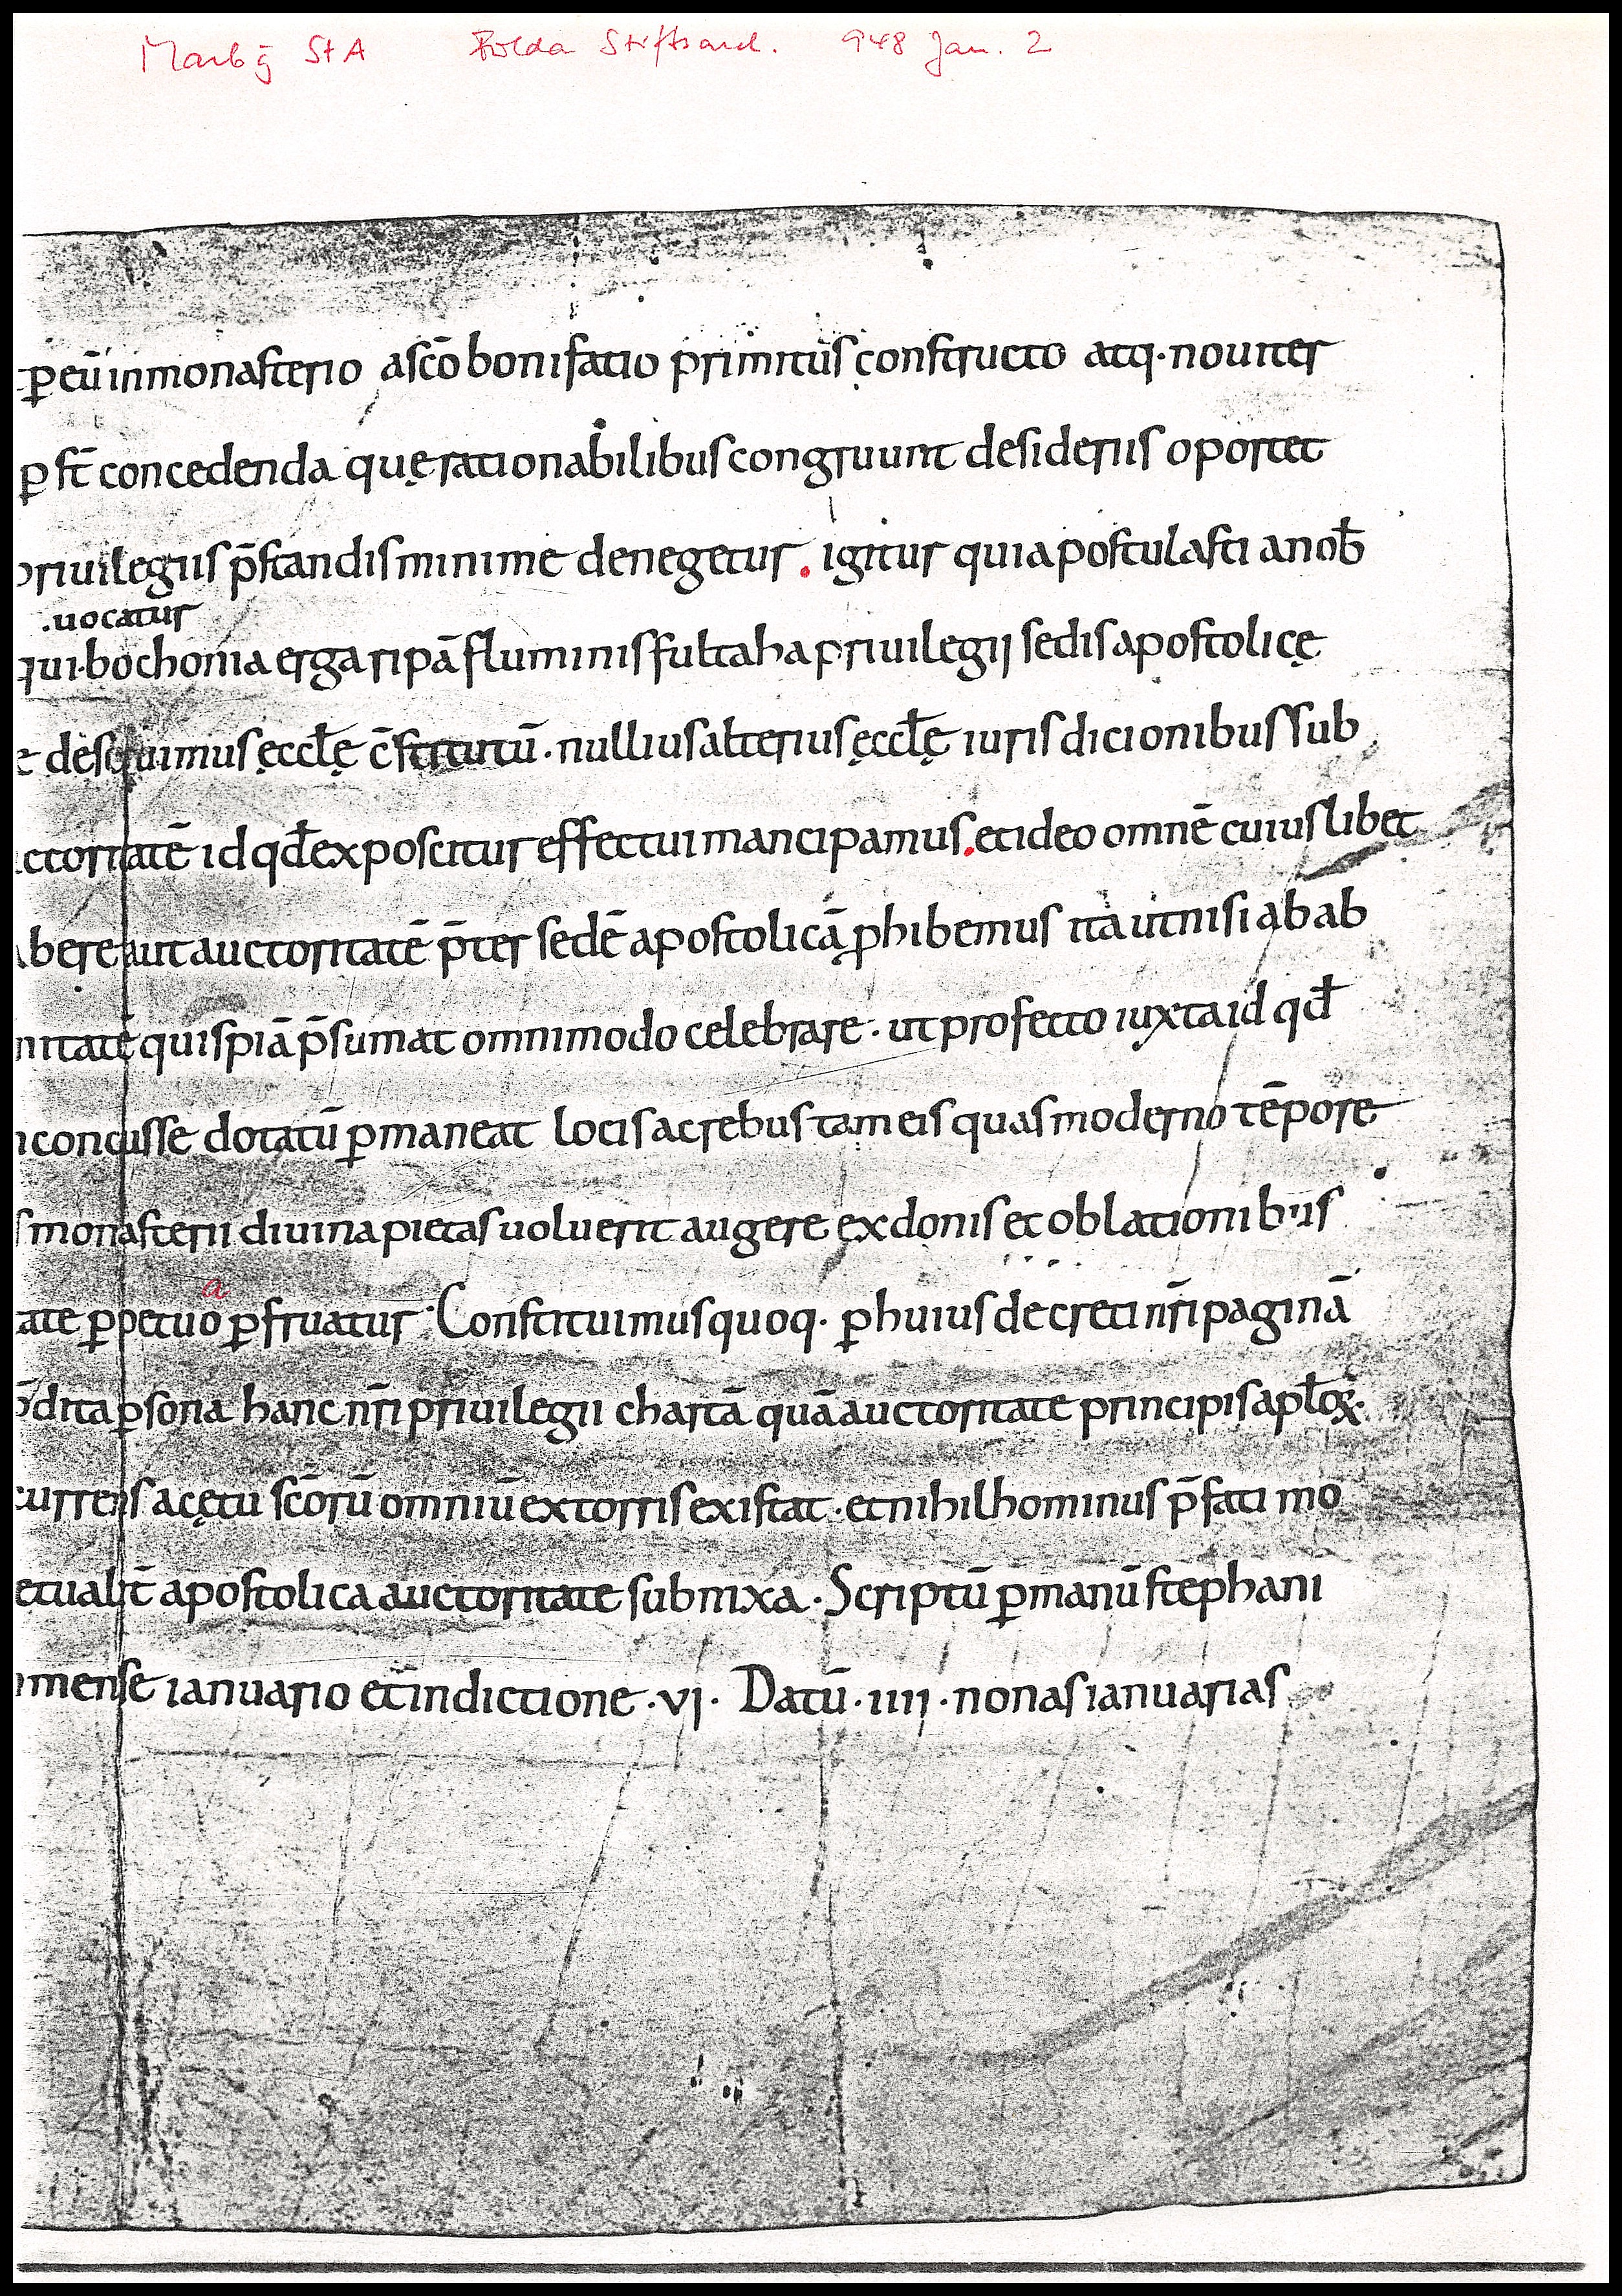 Marbg StA Fulda Stiftsarch. 948 Jan. 2
p̱ eū in monasterio a sc̄o bonifatio primitus constructo atq · nouiter
p ST̄ concedenda quę rationabilibus congruunt desideriis oportet
priuilegiis p̄standis minime denegetur . igitur quia postulasti a nob̄
.uocatur
qui · bochonia erga ripā fluminis fultaha priuilegij sedis apostolicę
deseruimus ęccl̄ę c̄stitutū · nullius alterius ęccl̄ę iuris dicionibus sub
ctoritatē id qd̄ exposcitur effectui mancipamus . et ideo omnē cuius libet
bere aut auctoritatē p̄ter sedē apostolicā ꝓhibemus ita ut nisi ab ab
nitatē quispiā p̄sumat omnimodo celebrare · ut profecto iuxta id qd̄
concusse dotatū ꝑmaneat locis ac rebus tam eis quas moderno tēpore
s monasterii diuina pietas uoluerit augere ex donis et oblationibus
a
ate ꝑpetuo ꝑfruatur · Constituimus quoq · ꝑ huius decreti nr̄i paginā
dita ꝑsona hanc nr̄i priuilegii chartā quā auctoritate principis apl̄oꝝ ·
currens ac ętu sc̄orū omniū extorris existat · et nihilhominus p̄fati mo
etualit̄ apostolica auctoritate subnixa · Scriptū ꝑ manū stephani
mense ianuario et indictione · vj · Datū · iiij · nonas ianuarias